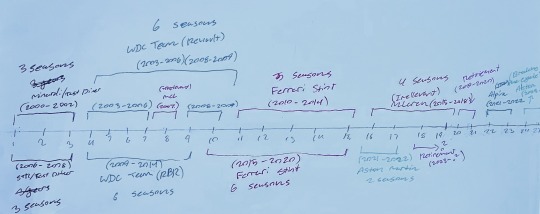 6 seasons
WDC Team (Renault)
(2003-2006)(2008-2009)
3 seasons
Minardi/Test Driver
(2000-2002)
(2003-2006)
(2007)
(2008-2009)
5 seasons
Ferrari Stint
(2010-2014)
4 seasons
(Irrelevant)
McLaren (2015-2018)
Retirement
(2019-2020)
Alpine
(2021-2022)
1 2 3 4 5 6 7 8 9 10 11 12 13 14 15 16 17 18 19 20 21 22 23 24
3 seasons
(2009-2014)
WDC Team (RBR)
6 seasons
(2015-2020)
Ferrari Stint
6 seasons
(2021-2022)
Aston Martin
2 seasons
Retirement
(2023-?)